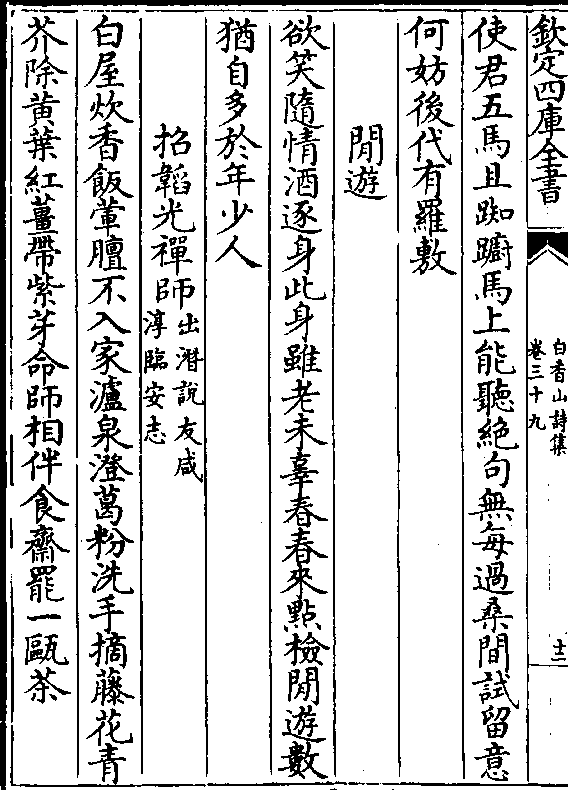 欽定四庫全書
白香山詩集
卷三十九
十二
使君五馬且踟躕馬上能聽絶句無每過桑間試留意
何妨後代有羅敷
閒遊
欲笑隨情酒逐身此身雖老未辜春春來點檢閒遊數
猶自多於年少人
招韜光禪師出潛說友咸
淳臨安志
白屋炊香飯葷膻不入家濾泉澄葛粉洗手摘藤花青
芥除黄葉紅薑帶紫芽命師相伴食齋罷一甌茶